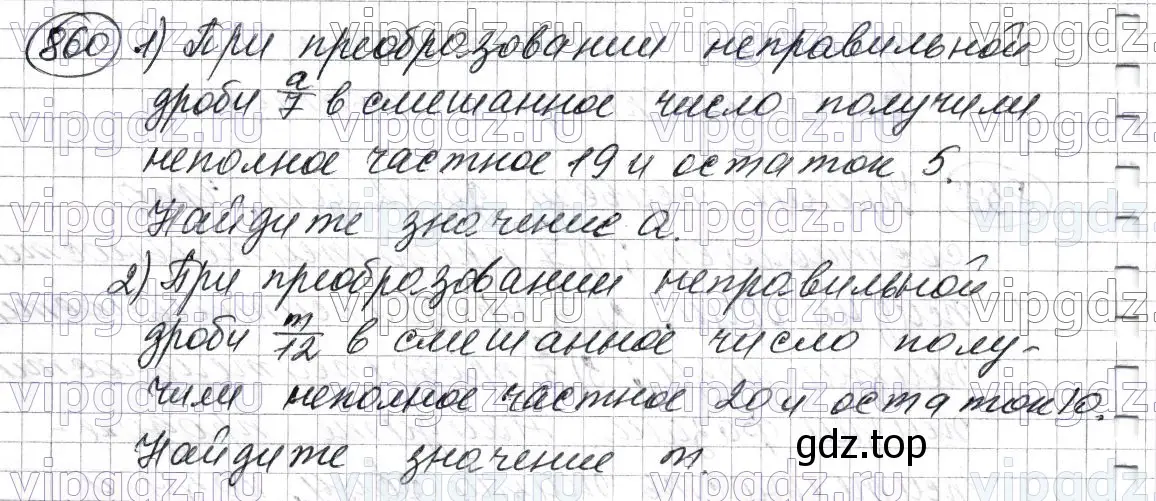 860 1) При преобразовании неправильной
дроби a/7 в смешанное число получили
неполное частное 19 и остаток 5.
Найдите значение a.
2) При преобразовании неправильной
дроби m/12 в смешанное число полу-
чили неполное частное 20 и остаток 10.
Найдите значение m.
gdz.top
vipgdz.ru